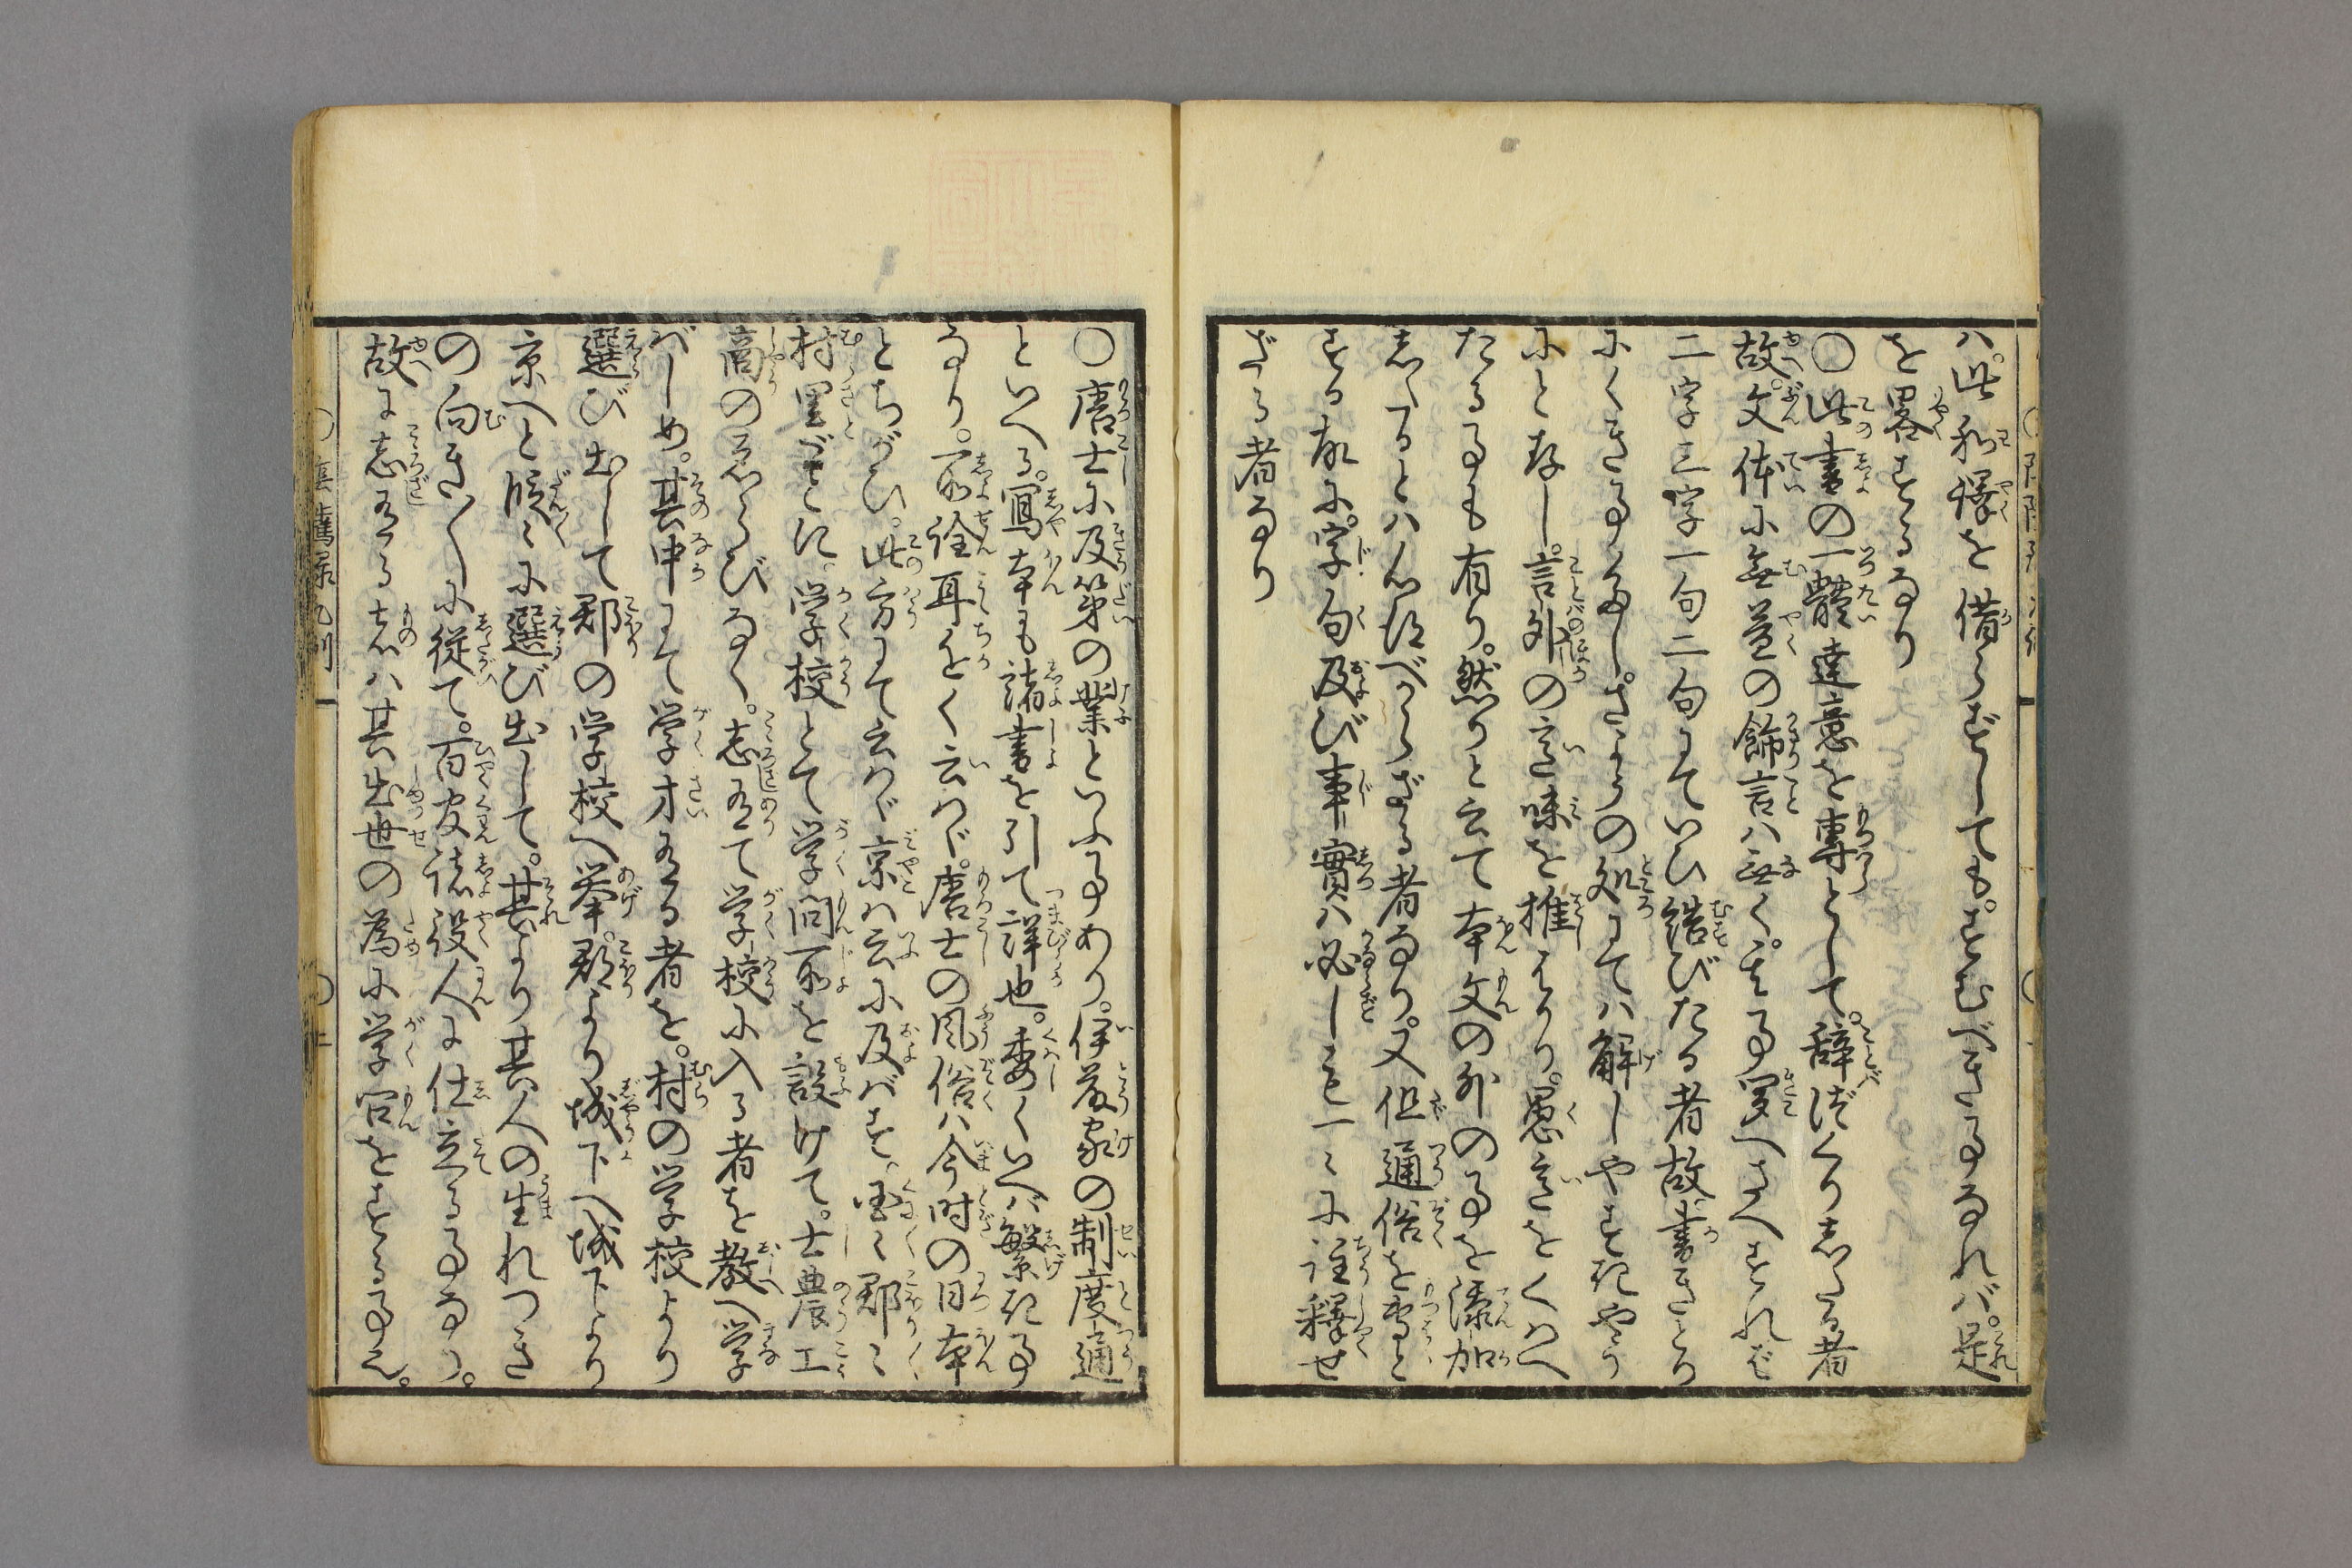 ハ。此和譯を借らずしても。すむべき事なれバ。是
を畧する為り
〇此書の一體達意を專として。辞づくり志たる者
故。文体に無益の飾言ハ無く。する事罕へさへすれど
二字三字一句二句にていひ結びたる者故書きとり
にくき事多し。さやうの処にてハ解しやすきやう
にと存し。言外の意味を推はかり。愚意をくハへ
たる事も有り。然りと云て本文の外の事を添加
志たるとハ心得べからざる者なり。又但通俗を專と
する故に。字句及び事實ハ必しも一々に註釋せ
ざる者なり
〇唐土に及第の業といふ事あり。伊藤家の制度通
といへる。寫本にも諸書を引て詳也。委くいへバ繁き事
なり。所詮耳ぢかく云ハゞ。唐土の風俗ハ今時の日本
とちがひ。此方にて云ハゞ京ハ云に及バず。国々郡々
村里ごとに。学校とて学問所を設けて。士農工
商のえらびなく。志有て学校に入る者を教へ学
べしめ。其中にて学才有る者を。村の学校より
選び出して郡の学校へ举。郡より城下へ城下より
京へと段々に選び出して。其より其人の生れつき
の向き〳〵に従て。百官諸役人に仕立る事なり。
故に志有る者ハ其出世の為に学問をする事也。